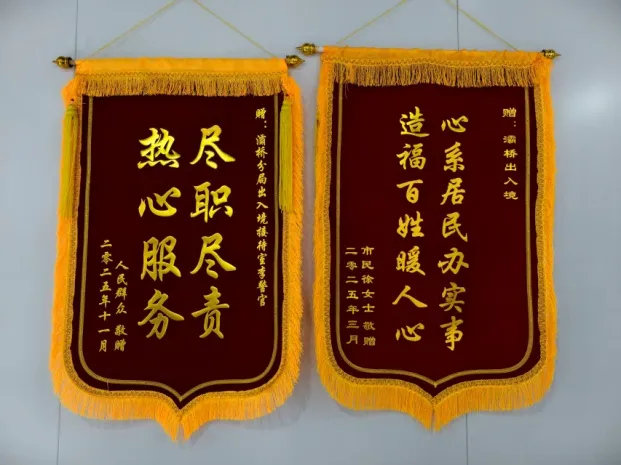 赠：灞桥分局出入境接待室李警官
尽职尽责
热心服务
人民群众 敬赠
二零二五年十一月
赠：灞桥出入境
心系居民办实事
造福百姓暖人心
市民徐女士敬赠
二零二五年三月